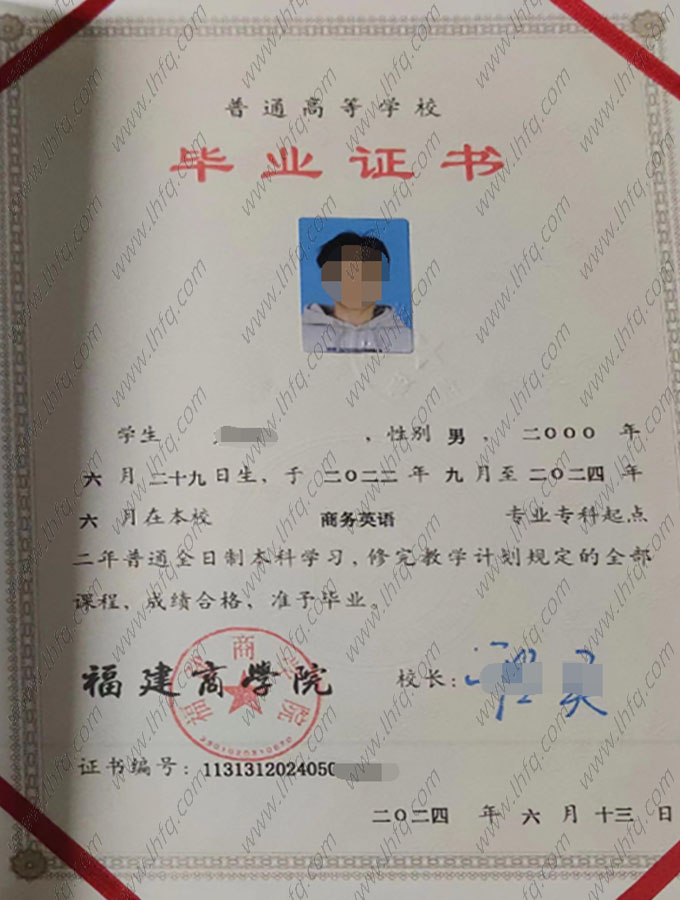 普通高等学校
毕业证书
学生 ，性别 男 ，二OOO 年
六 月 二十九 日生，于 二O二二 年 九 月至 二O二四 年
六 月在本校 商务英语 专业专科起点
二年普通全日制本科学习，修完教学计划规定的全部
课程，成绩合格，准予毕业。
福建商学院
校长：
证书编号：1131312024050
二O二四 年 六 月 十三 日
www.lhfq.com